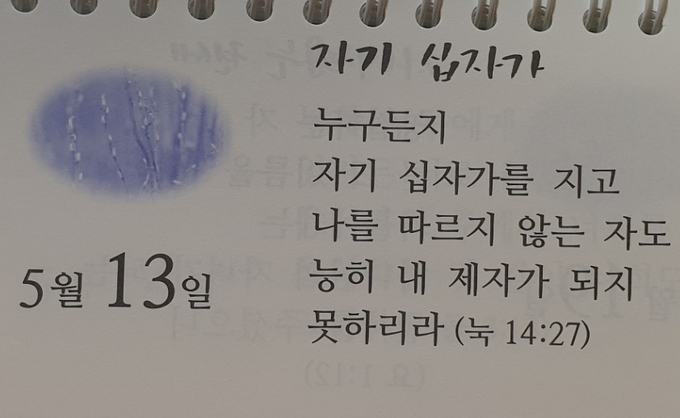 자기 십자가
누구든지
자기 십자가를 지고
나를 따르지 않는 자도
능히 내 제자가 되지
못하리라 (눅 14:27)
5월 13일